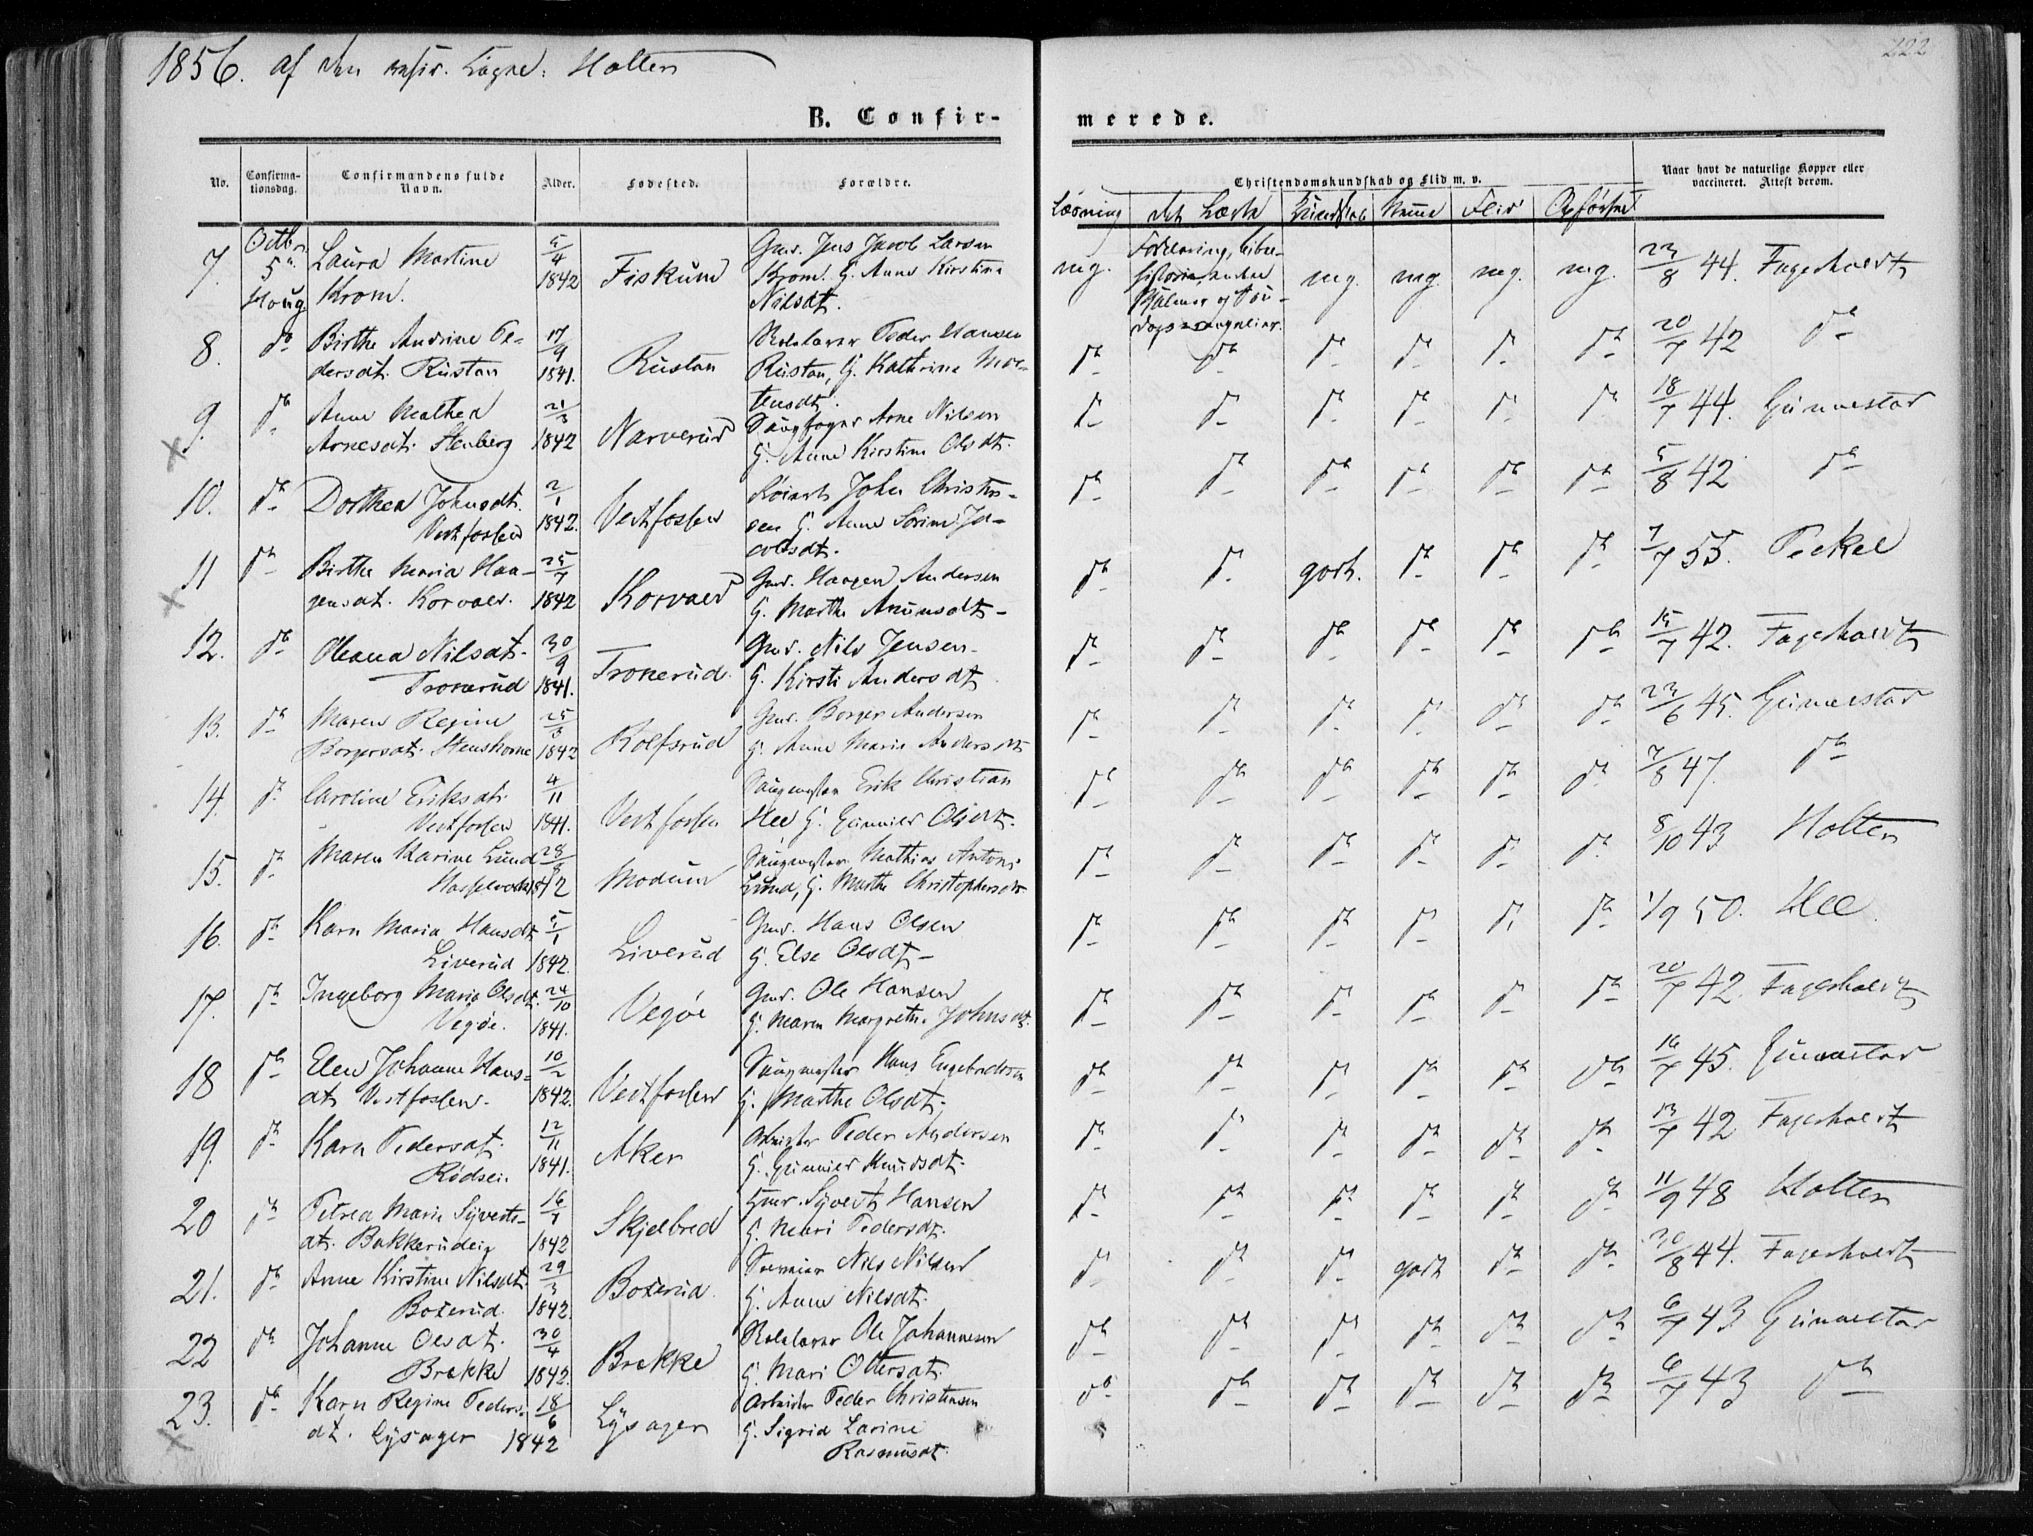 1856. af den Sogne: Holten
222
B. Confir-
merede.
No.
Confirma-
tionsdag.
Confirmandens fulde
Navn.
Alder.
Fødested.
Forældre.
Christendomskundskab og Flid m. v.
Naar havt de naturlige Kopper eller
vaccineret. Attest derom.
Læsning det Læste Kundskab Nemme Flid Opførsel
7. Octbr. Laura Martine 5/4 Fiskum Gmd. Jens Jacob Larsen mg. Forklaring, bibel- mg mg mg. mg. 23/8 44. Fagerholdt
5te Krom. 1842 Krom. G. Anne Kirstine historie, andre
Houg Nilsdt. Psalmer og
8. do Birthe Andrine Pe- 17/9 Rustan Peder Hansen do do do do do do 20/7 42 do
dersdt. Rustan 1841. Rustan, G. Kathrine Mor-
tensdt.
9. do Anne Mathea 21/3 Narverud Arne Nilsen do do do do do do 18/7 44. Gunnestad
Arnesdt. Stenberg 1842 G. Anne Kirstine Olsdt.
10. do Dorthea Johnsdt. 2/1 Vestfossen John Christen- do do do do do do 5/8 42 do
Vestfossen 1842. sen G. Anne Sorine Ja-
cobsdt.
11 do Birthe Maria Haa- 25/7 Korvald Gmd. Haagen Andersen do do godt. do do do 7/7 55. Peckel
gensdt. Korvald. 1842 G. Marthe Amundsdt
12. do Oleana Nilsdt. 30/9 Tronerud. Gmd. Nils Jensen do do do do do do 15/7 42. Fagerholdt
Tronerud 1841. G. Kirsti Andersdt
13. do Maren Regine 25/3 Rolfsrud Gmd. Borger Andersen do do do do do do 23/6 45. Gunnestad
Borgersdt. Stenshorne 1842 G. Anne Maria Andersdt
14. do Caroline Eriksdt. 4/11 Vestfossen Saugmester Erik Christian do do do do do do 7/8 47. do
Vestfossen 1841. Hee G. Gunnild Olsdt.
15. do Maren Karine Lund 28/ Modum Saugmester Mathias Anton do do do do do do 8/10 43 Holten
1842 Lund, G. Marthe Christophersdt
16. do Karn Maria Hansdt 5/1 Liverud Gmd. Hans Olsen do do do do do do 1/9 50. Hee
Liverud 1842. G. Else Olsdt
17. do Ingeborg Maria Olsdt. 24/10 Vegøe Gmd. Ole Hansen do do do do do do 20/7 42. Fagerholdt
Vegøe. 1841. G. Maren Margrethe Johnsdt.
18 do Elen Johanne Hans- 10/2 Vestfossen Saugmester Hans Engebretsen do do do do do do 16/7 45. Gunnestad
dt Vestfossen. 1842. G. Marthe Olsdt.
19. do Karn Pedersdt. 12/11 Aker Arbeider Peder Andersen do do do do do do 13/7 42 Fagerholdt
Rødsei. 1841. G. Gunnild Knudsdt.
20 do Petrea Marie Syverts- 16/7 Skjelbred Gmd. Syvert Hansen do do do do do do 11/9 48 Holten
dt. Bakkerudeig 1842 G. Mari Pedersdt.
21. do Anne Kirstine Nilsdt. 29/3 Boserud. Nils Nilsen do do do godt do do 30/8 44. Fagerholdt
Boserud. 1842. G. Anne Nilsdt.
22 do Johanne Olsdt. 30/4 Brekke Ole Johannesen do do do do do do 6/7 43 Gunnestad
Brekke 1842. G. Mari Ottersdt.
23. do Karn Regine Peders- 18/6 Lysager Arbeider Peder Christensen do do do do do do 6/7 43 do
dt. Lysager 1842 G. Sigrid Larine
Rasmusdt.